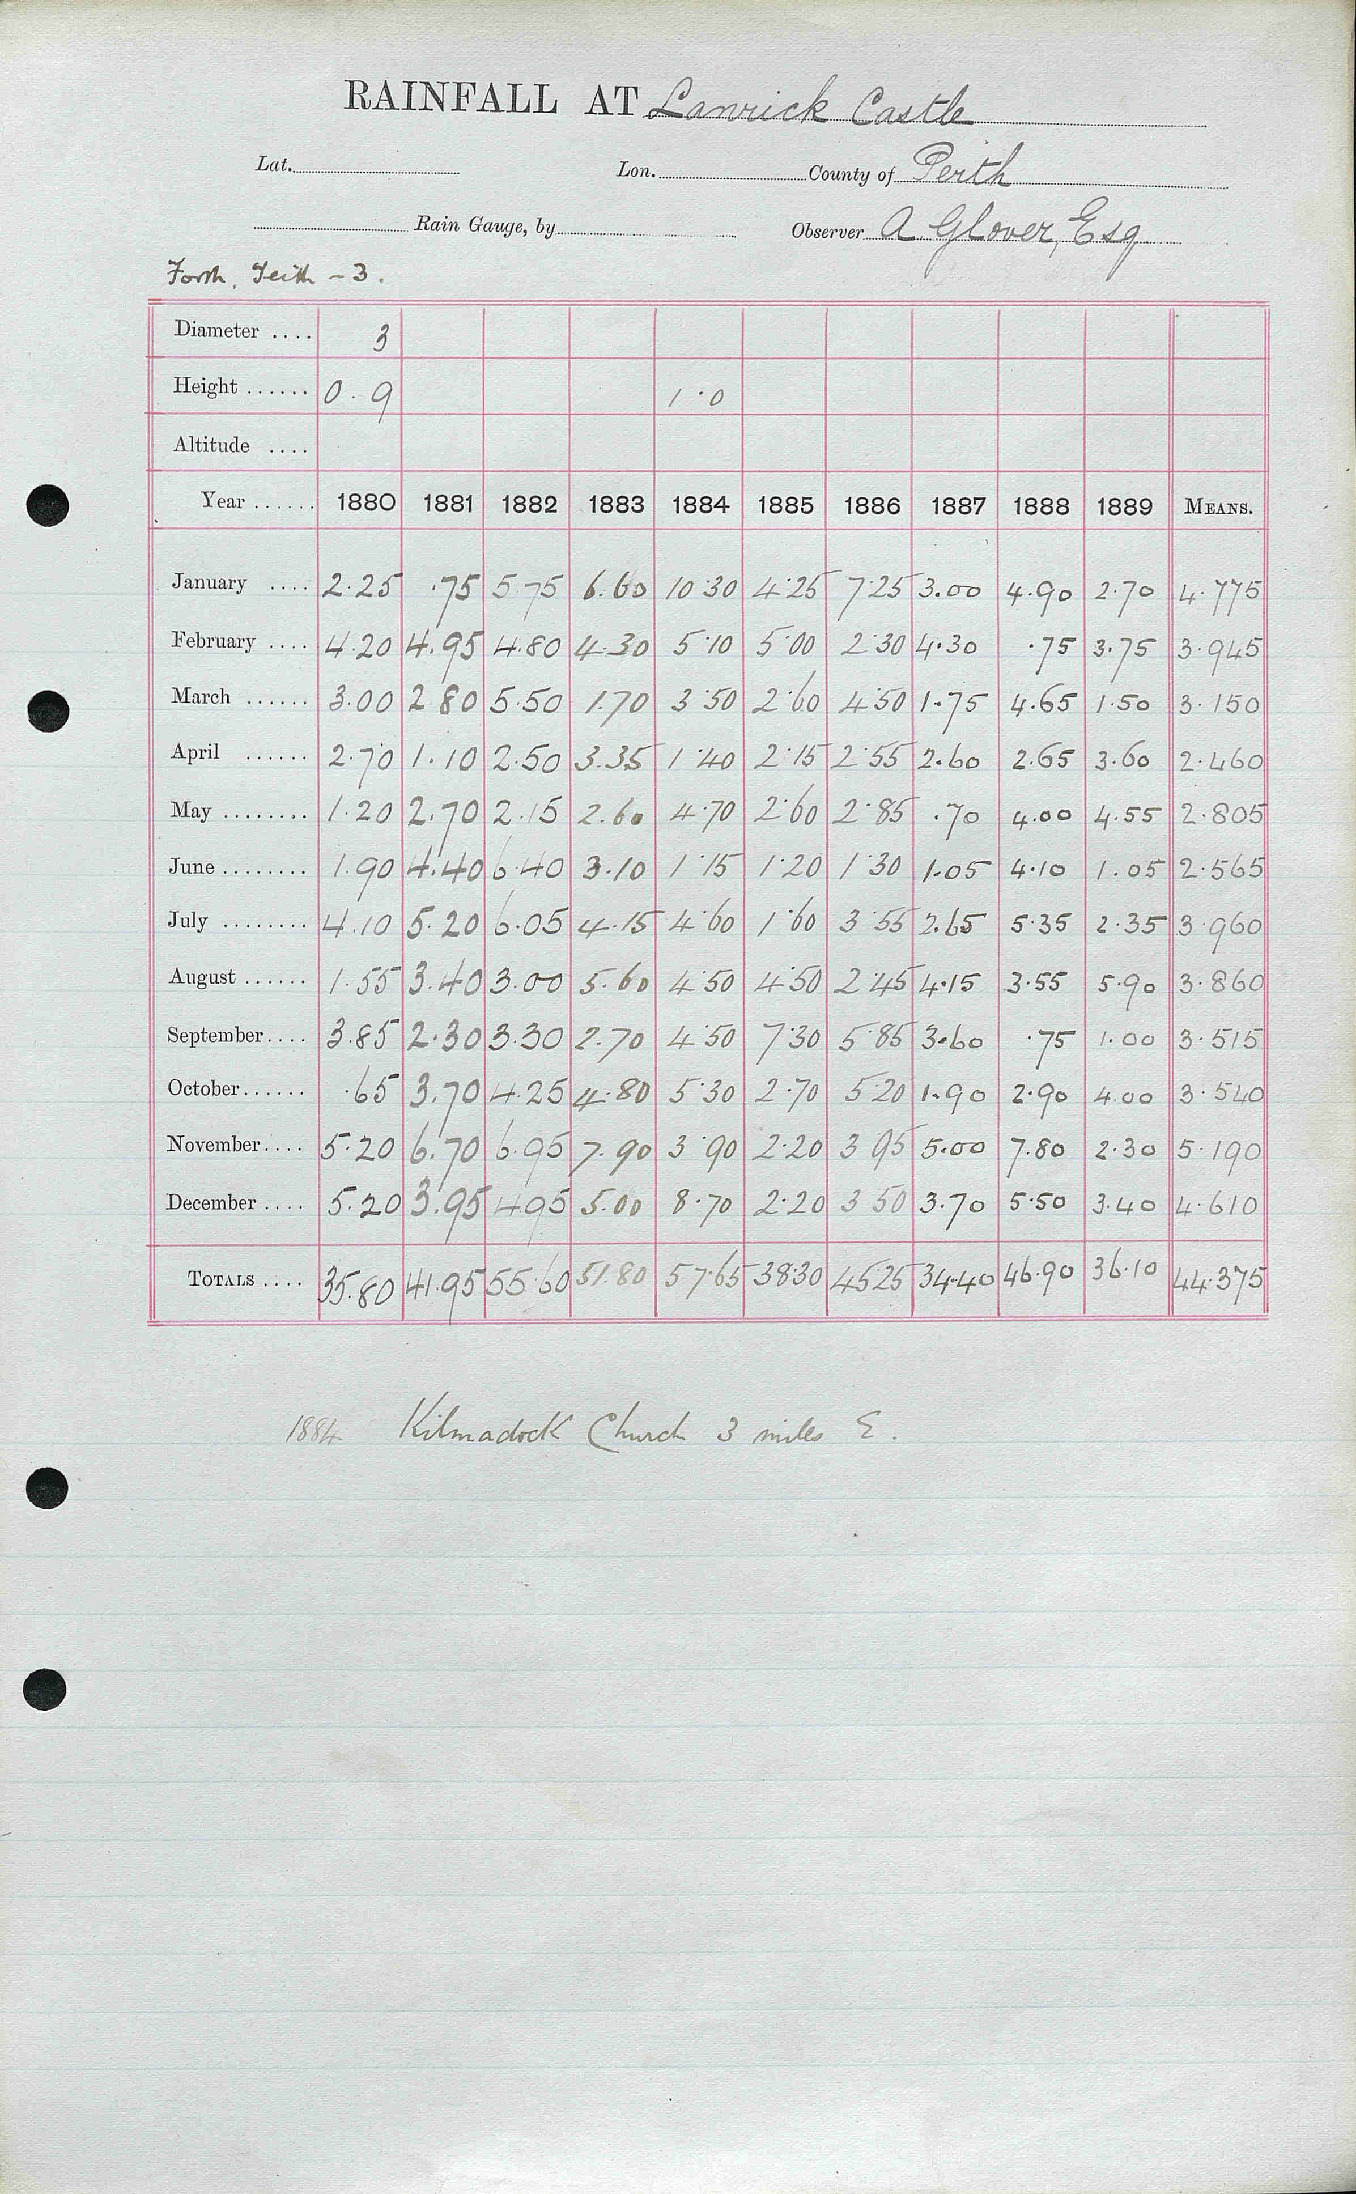 RAINFALL AT Lanrick Castle
Lat. Lon. County of Perth
Rain Gauge, by Observer A Glover, Esq
Forth, Teith - 3.
Diameter .... 3
Height ...... 0.9 1.0
Altitude ....
Year ...... 1880 1881 1882 1883 1884 1885 1886 1887 1888 1889 MEANS.
January .... 2.25 .75 5.75 6.60 10.30 4.25 7.25 3.00 4.90 2.70 4.775
February .... 4.20 4.95 4.80 4.30 5.10 5.00 2.30 4.30 .75 3.75 3.945
March ...... 3.00 2 80 5.50 1.70 3.50 2.60 4.50 1.75 4.65 1.50 3.150
April ...... 2.70 1.10 2.50 3.35 1.40 2.15 2.55 2.60 2.65 3.60 2.460
May ........ 1.20 2.70 2.15 2.60 4.70 2.60 2.85 .70 4.00 4.55 2.805
June ........ 1.90 4.40 6.40 3.10 1.15 1.20 1.30 1.05 4.10 1.05 2.565
July ........ 4.10 5.20 6.05 4.15 4.60 1.60 3.55 2.65 5.35 2.35 3.960
August ...... 1.55 3.40 3.00 5.60 4.50 4.50 2.45 4.15 3.55 5.90 3.860
September.... 3.85 2.30 3.30 2.70 4.50 7.30 5.85 3.60 .75 1.00 3.515
October...... .65 3.70 4.25 4.80 5.30 2.70 5.20 1.90 2.90 4.00 3.540
November.... 5.20 6.70 6.95 7.90 3.90 2.20 3.95 5.00 7.80 2.30 5.190
December .... 5.20 3.95 4.95 5.00 8.70 2.20 3.50 3.70 5.50 3.40 4.610
TOTALS .... 35.80 41.95 55.60 51.80 57.65 38.30 45.25 34.40 46.90 36.10 44.375
1884 Kilmadock Church 3 miles E.